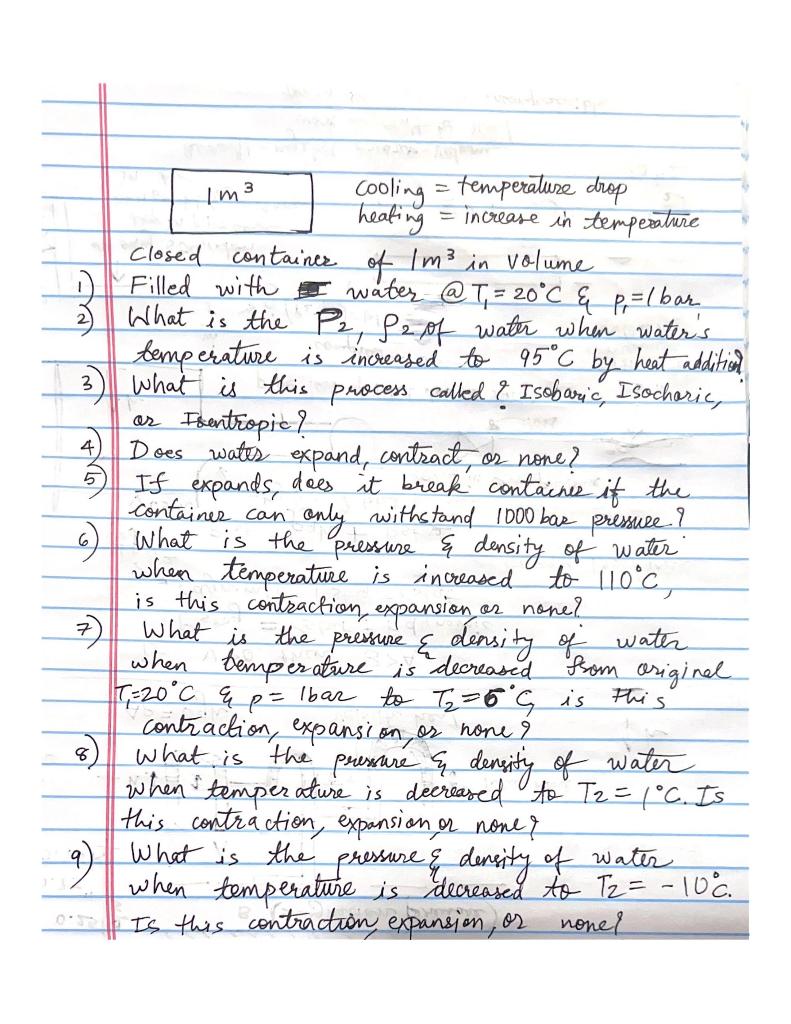 1 m³
cooling = temperature drop
heating = increase in temperature
Closed container of 1m³ in volume
1) Filled with water @ T₁ = 20°C & p₁=1bar
2) What is the P₂, ρ₂ of water when water's
temperature is increased to 95°C by heat addition?
3) What is this process called? Isobaric, Isochoric,
or Isentropic?
4) Does water expand, contract, or none?
5) If expands, does it break container if the
container can only withstand 1000 bar pressure?
6) What is the pressure & density of water
when temperature is increased to 110°C,
is this contraction, expansion or none?
7) What is the pressure & density of water
when temperature is decreased from original
T₁=20°C & p = 1bar to T₂=6°C, is this
contraction, expansion, or none?
8) What is the pressure & density of water
when temperature is decreased to T₂ = 1°C. Is
this contraction, expansion, or none?
9) What is the pressure & density of water
when temperature is decreased to T₂ = -10°C.
Is this contraction, expansion, or none?